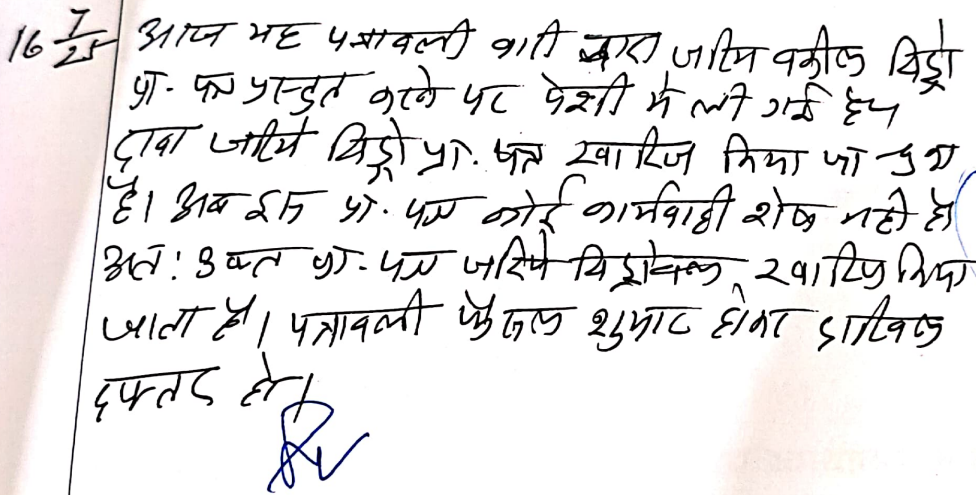 16 7/25 आज यह पत्रावली वादी द्वारा जरिये वकील विड्रो
प्रा. पत्र प्रस्तुत करने पर पेशी में ली गई
दावा जरिये विड्रो प्रा. पत्र खारिज किया जा चुका
है। अब इस प्रा. पत्र कोई कार्यवाही शेष नही है
अतः उक्त प्रा. पत्र जरिये खारिज किया
जाता है। पत्रावली फैसल शुमार होकर दाखिल
दफ्तर हो।